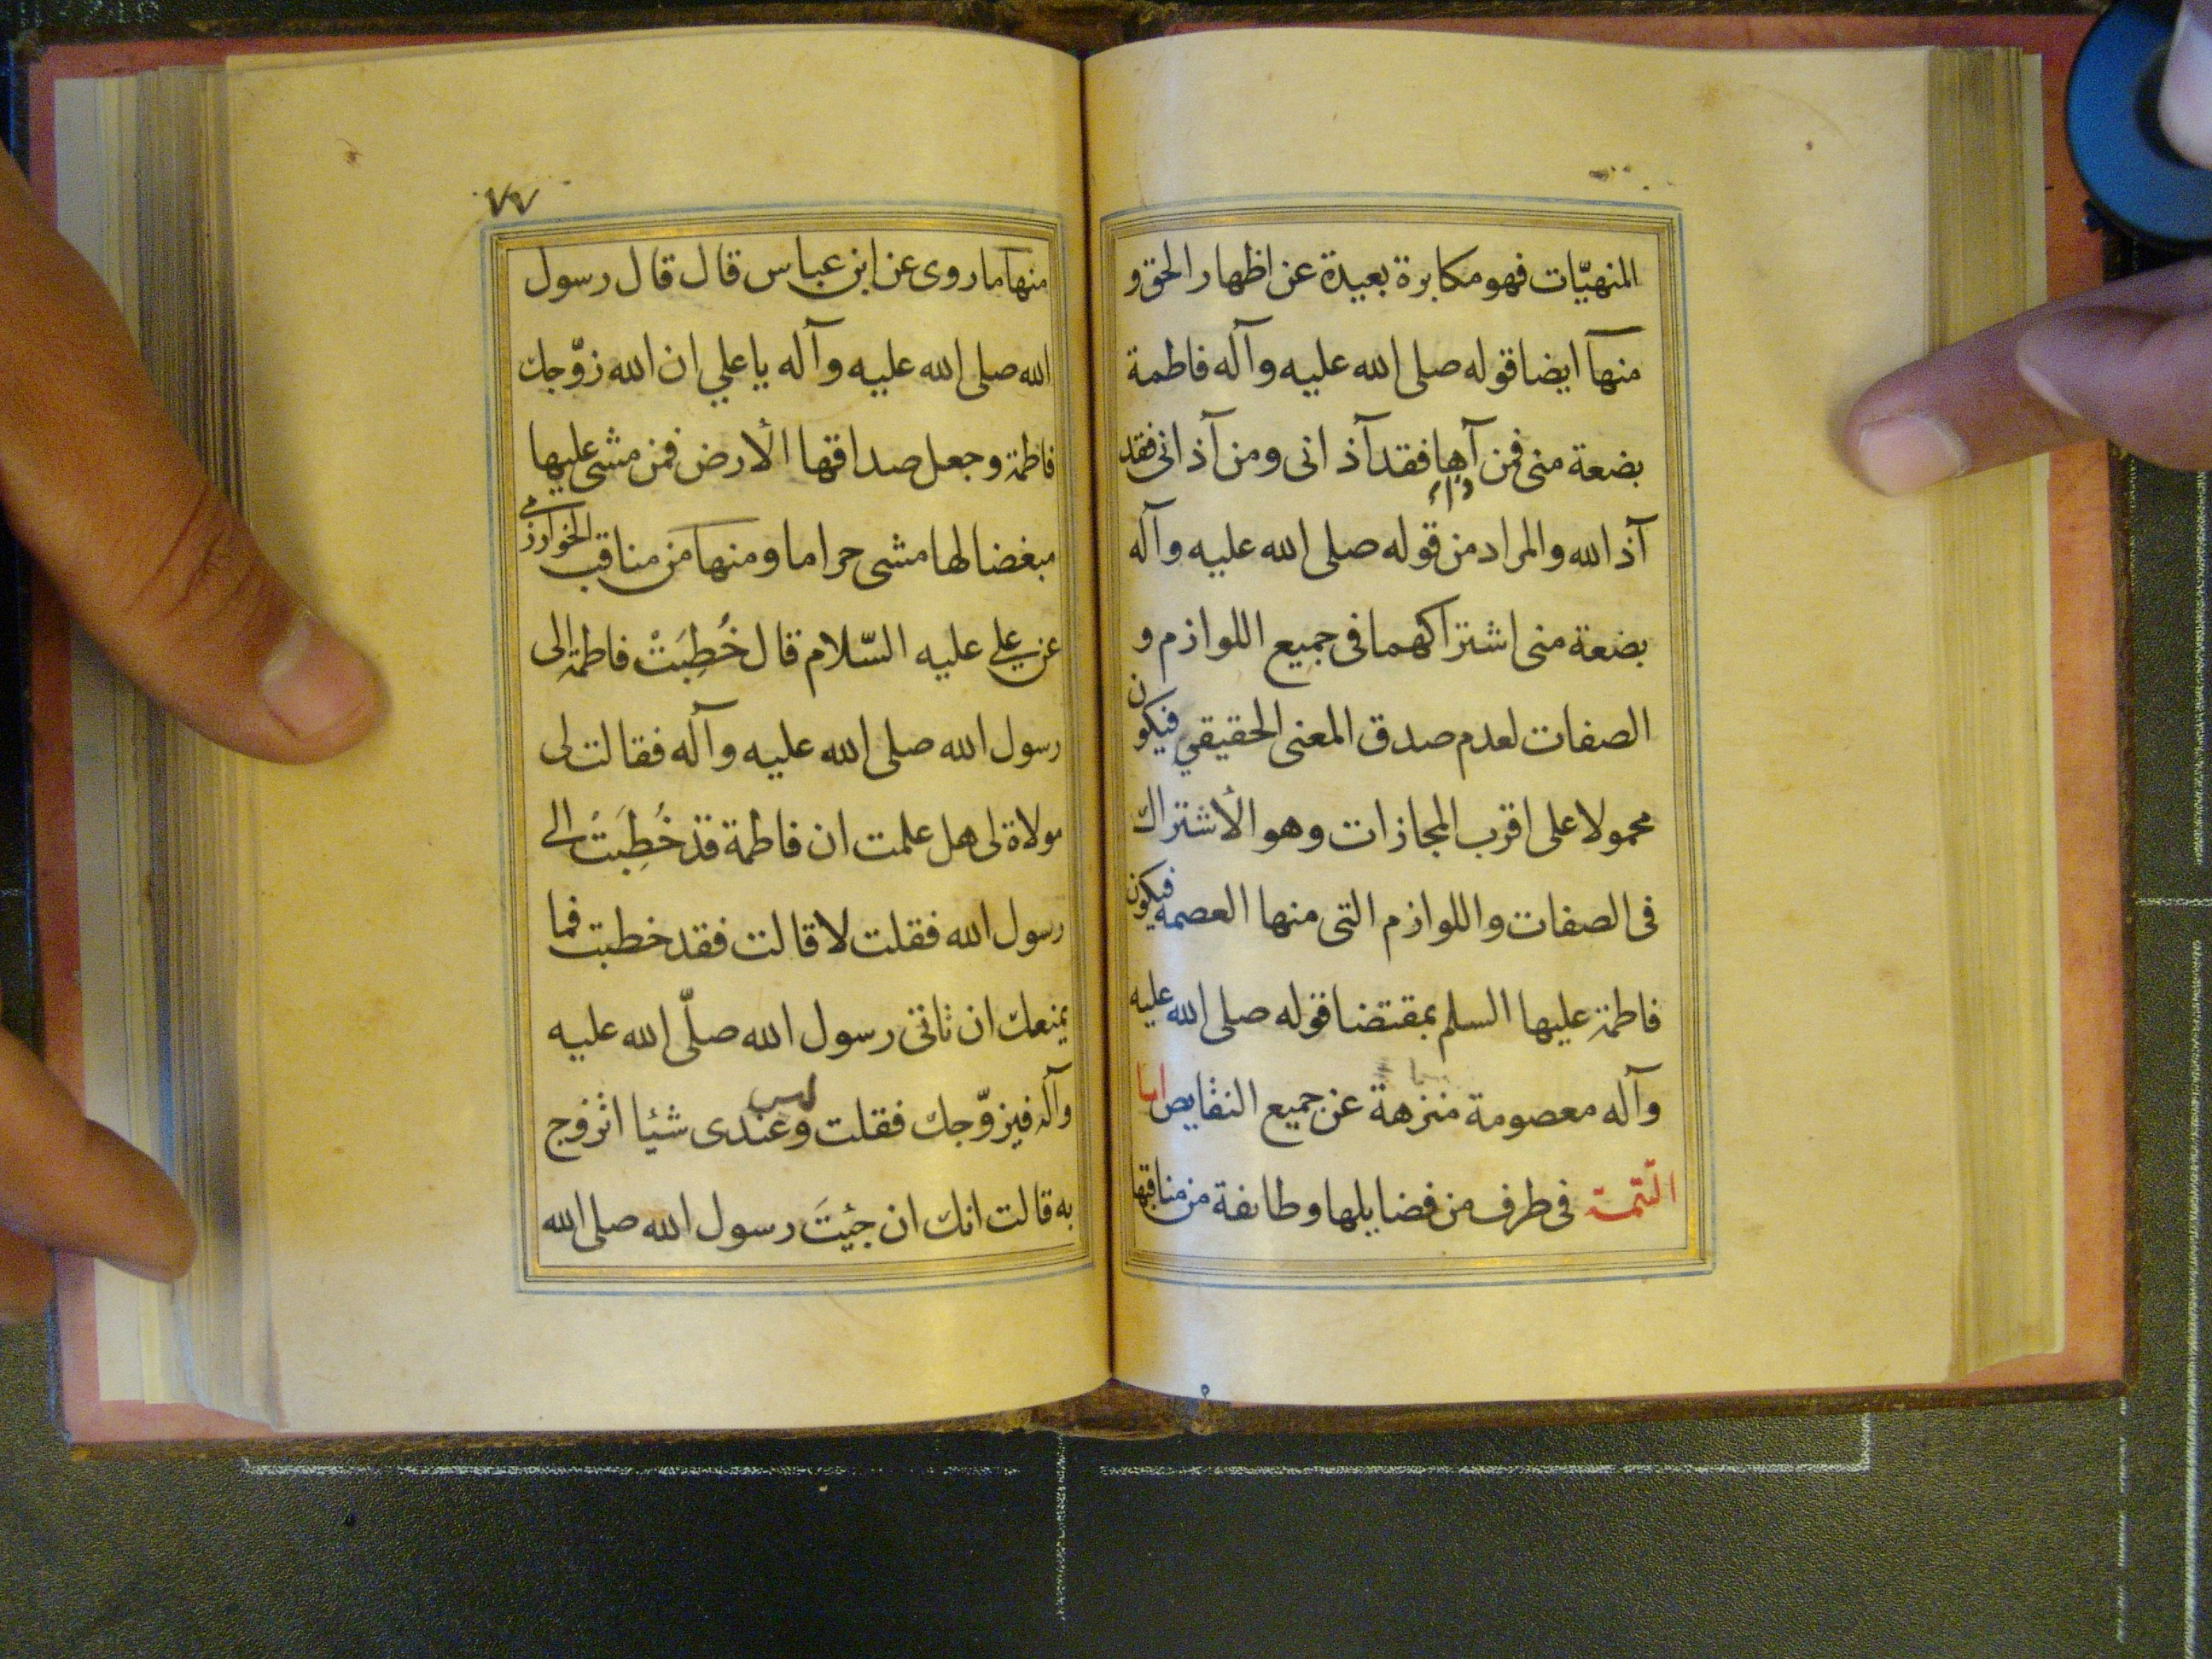 المنهيّات فهو مكابرة بعيدة عن اظهار الحق و
منها ايضا قوله صلى الله عليه وآله فاطمة
بضعة منى فمن آهافقد آذانى ومن آذانى فقد
آذ الله والمراد من قوله صلى الله عليه وآله
بضعة منى اشتراكهما فى جميع اللوازم و
الصفات لعدم صدق المعنى الحقيقي فيكون
محمولا على اقرب المجازات وهو الأشتراك
فى الصفات واللوازم التى منها العصمه فيكون
فاطمة عليها السلم بمقتضا قوله صلى الله عليه
وآله معصومة منزهة عن جميع النقايص اما
التتمة فى طرف من فضايلها وطائفة من مناقبها
٧٧
منها ما روى عن ابن عباس قال قال رسول
الله صلى الله عليه وآله يا علي ان الله زوّجك
فاطمة وجعل صداقها الأرض فمن مشى عليها
مبغضا لها مشى حراما ومنها من مناقب الخوارزمى
عن علي عليه السّلام قال خُطِبَتْ فاطمة الى
رسول الله صلى الله عليه وآله فقالت لى
مولاة لى هل علمت ان فاطمة قد خُطِبَتْ الى
رسول الله فقلت لا قالت فقد خطبت فما
يمنعك ان تاتى رسول الله صلّى الله عليه
وآله فيزوّجك فقلت وعندى شئيا اتزوج
به قالت انك ان جئيتَ رسول الله صلى الله